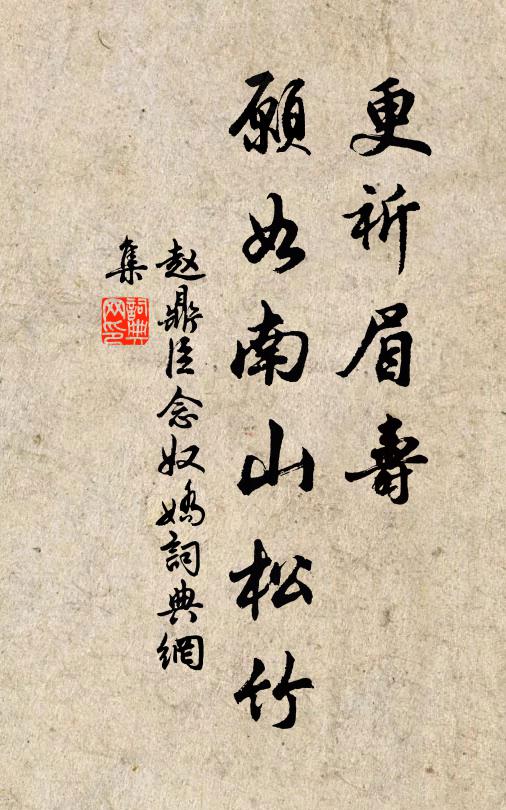 更祈眉壽
願如南山松竹
赵鼎臣念奴嬌詞典網
集
詞典
网印